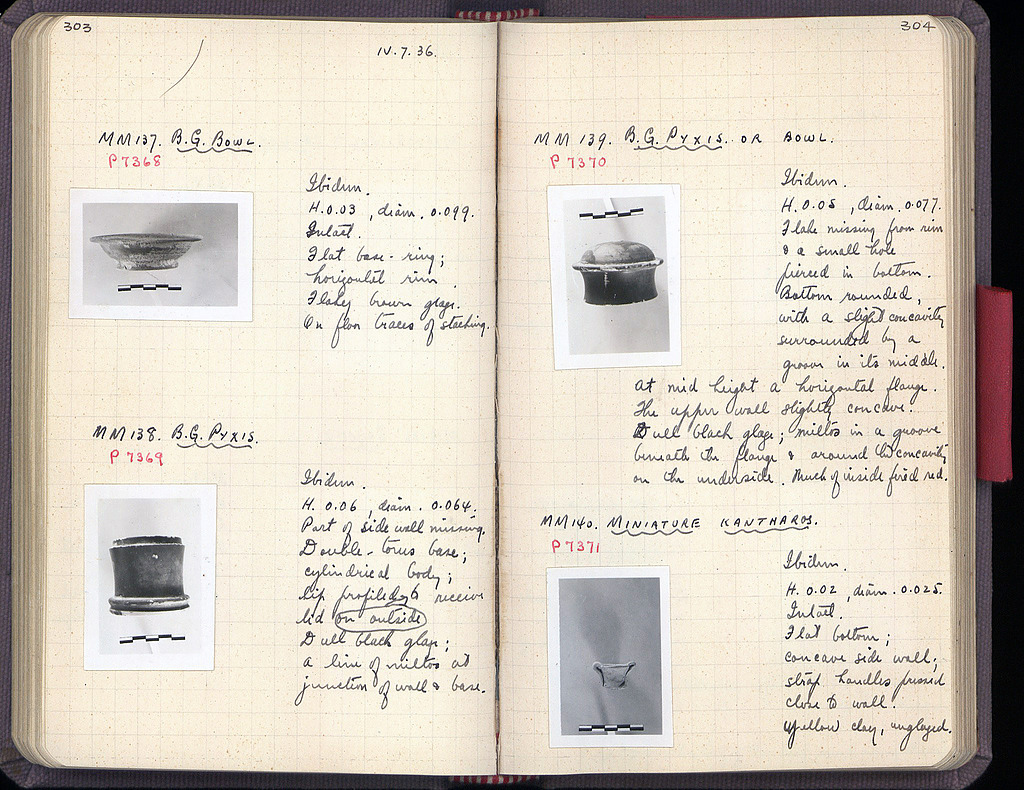 303
IV.7.36.
MM137. B.G. BOWL.
P 7368
Ibidem.
H. 0.03, diam. 0.099.
Intact.
Flat base-ring;
horizontal rim.
Flakey brown glaze.
On floor traces of stacking.
MM138. B.G. PYXIS.
P 7369
Ibidem.
H. 0.06, diam. 0.064.
Part of side wall missing.
Double-torus base;
cylindrical body;
lip profiled to receive
lid on outside
Dull black glaze;
a line of miltos at
junction of wall & base.
304
MM 139. B.G. PYXIS. OR BOWL.
P 7370
Ibidem.
H. 0.05, diam. 0.077.
Flake missing from rim
& a small hole
pierced in bottom.
Bottom rounded,
with a slight concavity
surrounded by a
groove in its middle.
At mid height a horizontal flange.
The upper wall slightly concave.
Dull black glaze; miltos in a groove
beneath the flange & around the concavity
on the underside. Much of inside fired red.
MM140. MINIATURE KANTHAROS.
P 7371
Ibidem.
H. 0.02, diam. 0.025.
Intact.
Flat bottom;
concave side wall;
strap handles pressed
close to wall.
Yellow clay, unglazed.